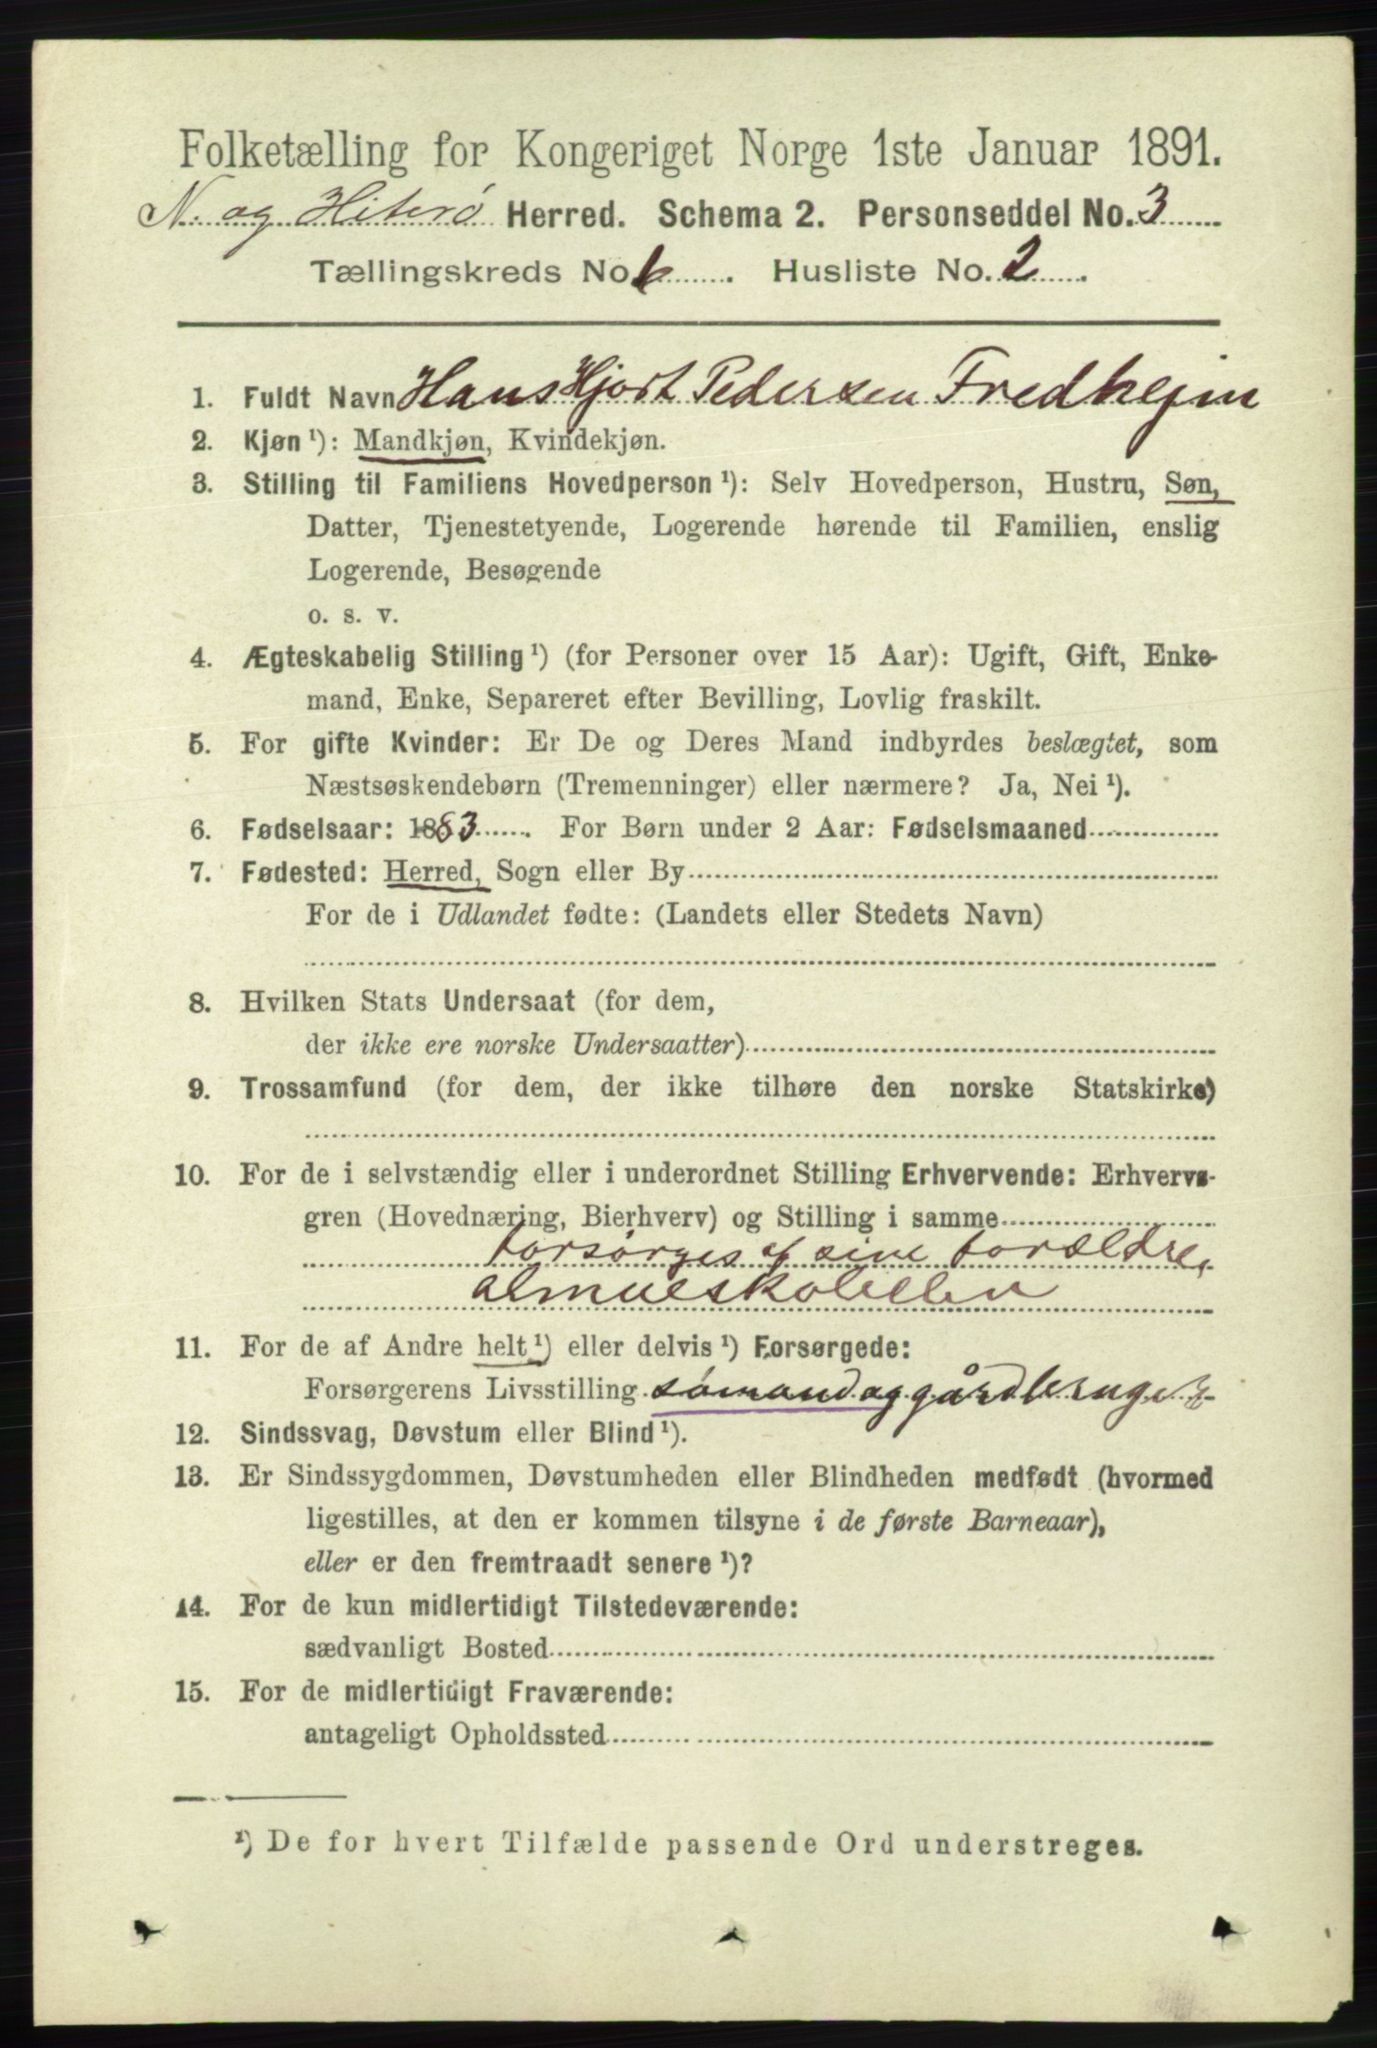 Folketælling for Kongeriget Norge 1ste Januar 1891.
N. og Hiterø Herred. Schema 2. Personseddel No. 3
Tællingskreds No. 6. Husliste No. 2.
1. Fuldt Navn Hans Hjort Pedersen Fredhejm
2. Kjøn ¹): Mandkjøn, Kvindekjøn.
3. Stilling til Familiens Hovedperson ¹): Selv Hovedperson, Hustru, Søn,
Datter, Tjenestetyende, Logerende hørende til Familien, enslig
Logerende, Besøgende
o. s. v.
4. Ægteskabelig Stilling ¹) (for Personer over 15 Aar): Ugift, Gift, Enke-
mand, Enke, Separeret efter Bevilling, Lovlig fraskilt.
5. For gifte Kvinder: Er De og Deres Mand indbyrdes beslægtet, som
Næstsøskendebørn (Tremenninger) eller nærmere? Ja, Nei ¹).
6. Fødselsaar: 1883. For Børn under 2 Aar: Fødselsmaaned
7. Fødested: Herred, Sogn eller By
For de i Udlandet fødte: (Landets eller Stedets Navn)
8. Hvilken Stats Undersaat (for dem,
der ikke ere norske Undersaatter)
9. Trossamfund (for dem, der ikke tilhøre den norske Statskirke)
10. For de i selvstændig eller i underordnet Stilling Erhvervende: Erhvervs-
gren (Hovednæring, Bierhverv) og Stilling i samme
forsørges af sine forældre,
almueskoleelev
11. For de af Andre helt ¹) eller delvis ¹) Forsørgede:
Forsørgerens Livsstilling sømand og gårdbruger
12. Sindssvag, Døvstum eller Blind ¹).
13. Er Sindssygdommen, Døvstumheden eller Blindheden medfødt (hvormed
ligestilles, at den er kommen tilsyne i de første Barneaar),
eller er den fremtraadt senere ¹)?
14. For de kun midlertidigt Tilstedeværende:
sædvanligt Bosted
15. For de midlertidigt Fraværende:
antageligt Opholdssted
¹) De for hvert Tilfælde passende Ord understreges.